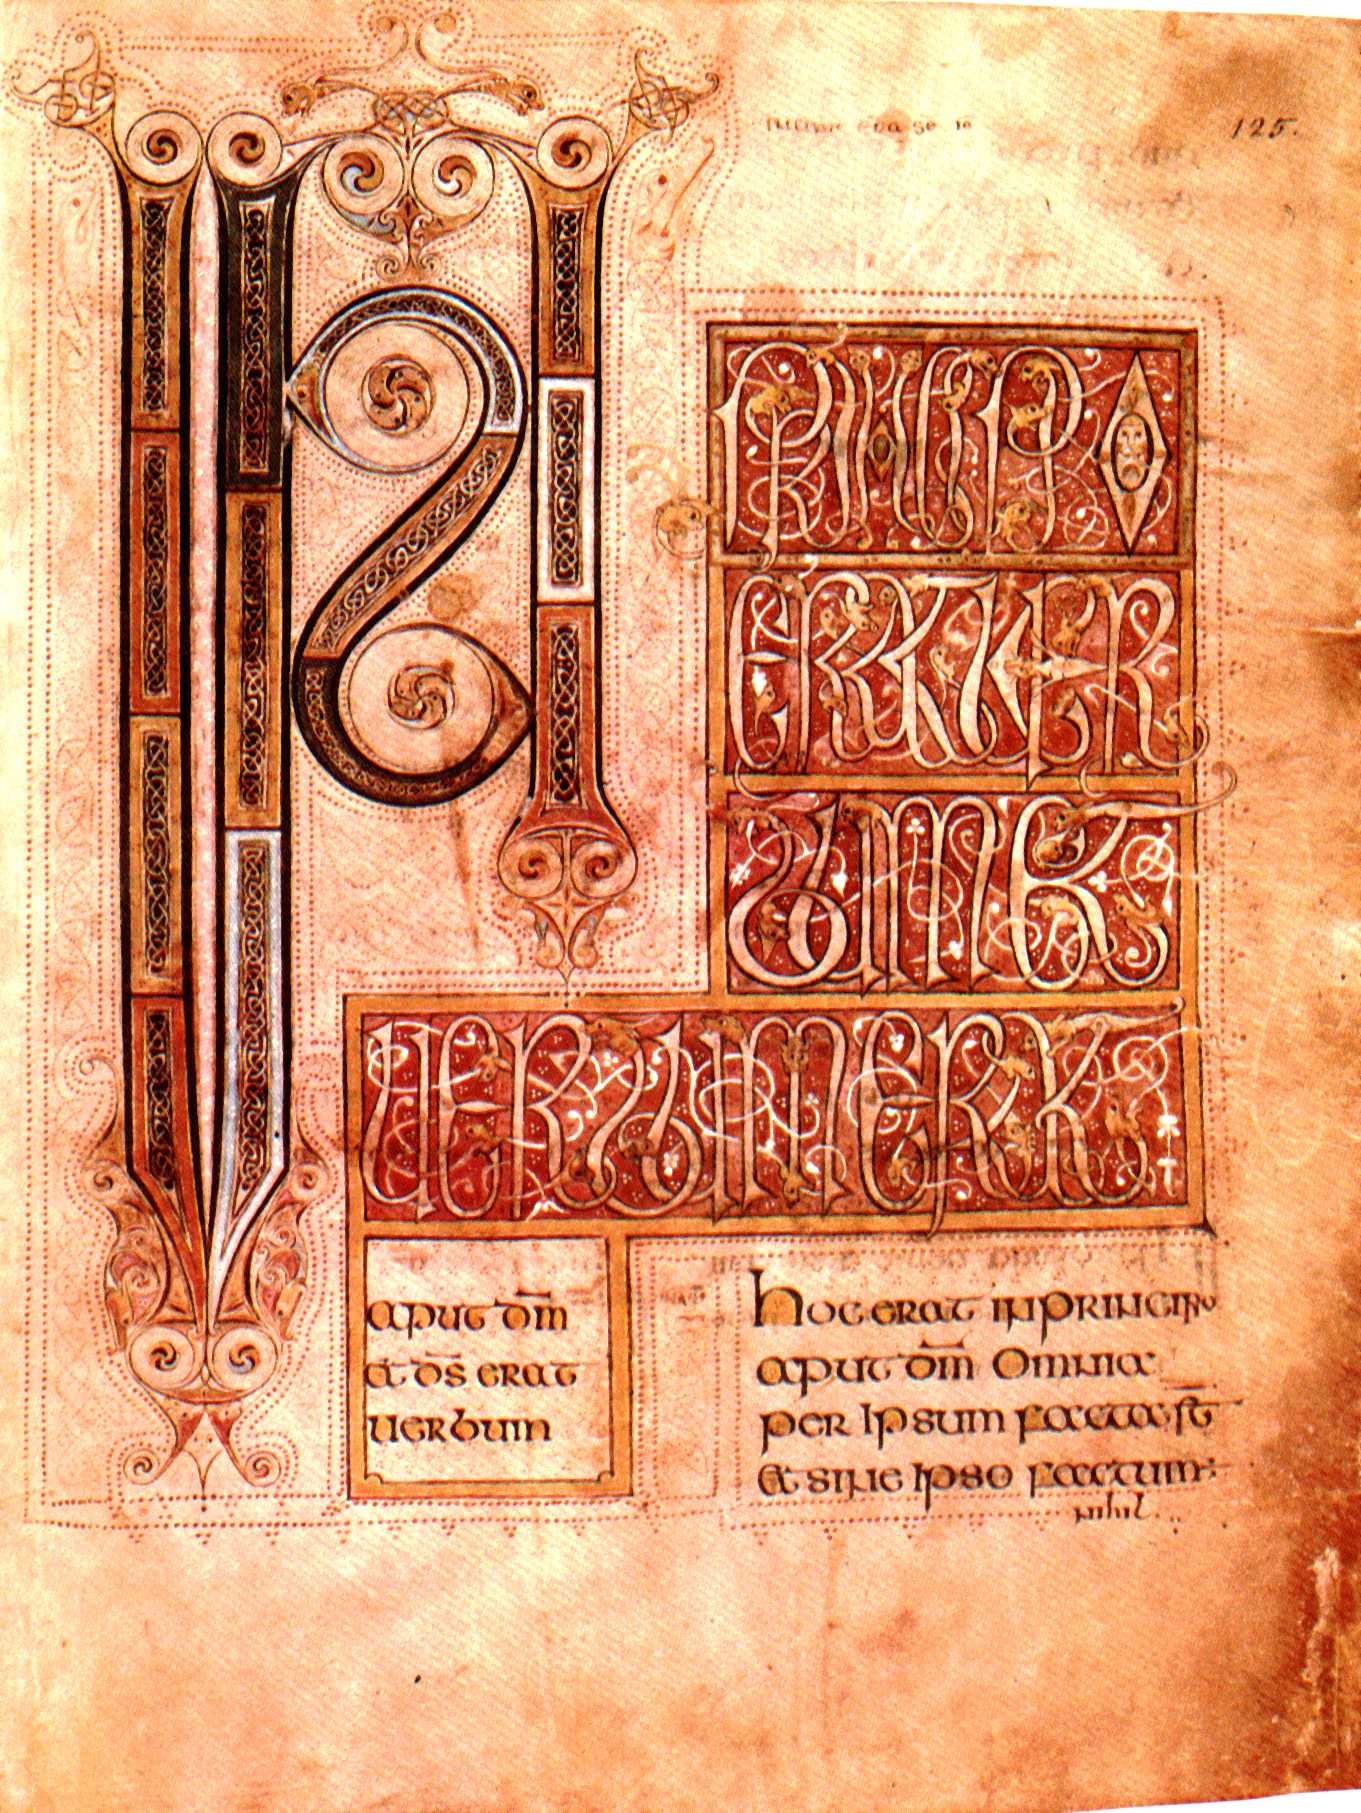 125.
IN
PRINCIPIO
ERAT UER
BUM ET
UERBUM ERAT
aput dm̄
et ds̄ erat
uerbum
hoc erat in principio
aput dm̄ Omnia
per ipsum facta st̄
et sine ipso factum:
nihil.